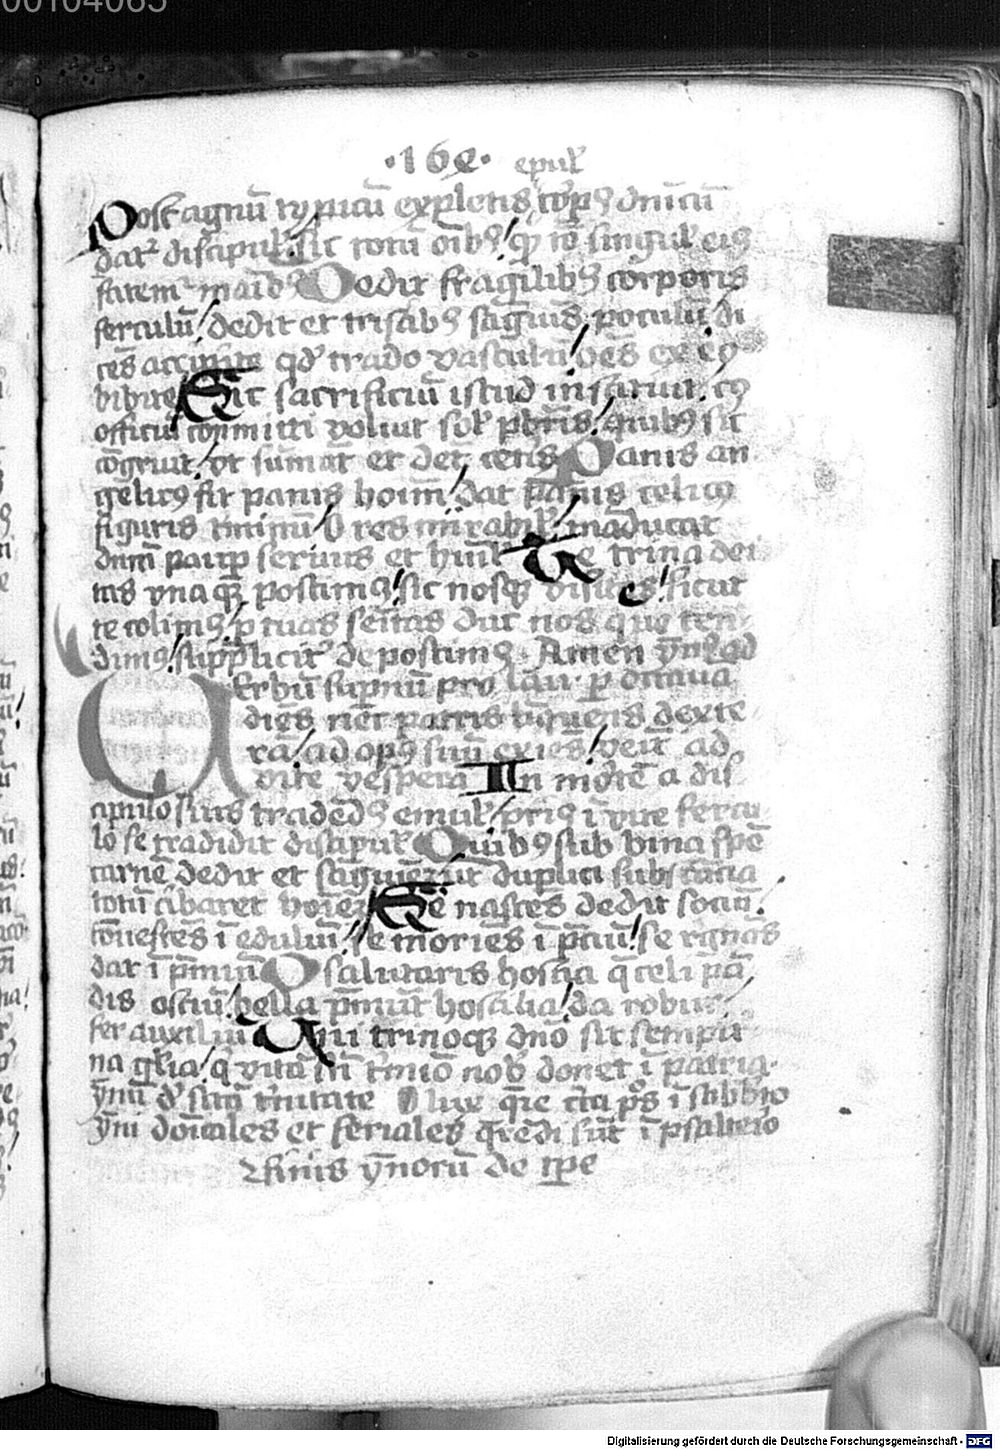 00104065
·16e· epul᷒
Post agnū typicū expletis epul᷒ corpꝯ dnicū
datr̄ discipul᷒. sic totū oībꝯ / qđ totū singul᷒ eiꝰ
fatem᷒ manibꝯ Dedit fragilibꝯ corporis
ferculū / dedit et tristibꝯ sāguīs poculū / di
cēs accipite qđ trado vasculū / oēs ex eo
bibite Sic sacrificiū istud instituit. cꝰ
officiū committi voluit sol᷒ pbrīs / quibꝯ sic
cōgruit / vt sumāt et dēt ceteris Panis an
gelicꝰ fit panis hoīm / dat panis celicꝰ
figuris t̄minū / O res mirabil᷒ / māducat
dnm̄ paup̄ seruus et humil᷒ Te trina dei
tas vnaqꝫ poscimꝰ / sic nos tu visites / sicut
te colimꝰ / p̄ tuas semitas duc nos quo ten
dimꝰ / suppliciter deposcimꝰ Amen ymꝰ ad
Verbū supernū pro laud᷒ per octaua
diēs nec patris linquens dexte
ra / ad opꝰ suū exiēs / venit ad
vite vespera In mortē a dis
cipulo suis tradendꝰ emul᷒ / priꝰ ī vite fercu
lo se tradidit discipul᷒ Quibꝯ sub bina spē
carnē dedit et sāguinē / vt duplici substācia
totū cibaret hominē Se nascēs dedit sociū /
cōuescēs ī eduliū / se moriēs ī p̄ciū / se regnās
dat ī p̄miū O salutaris hostia q̄ celi pā
dis ostiū / bella p̄munt hostilia / da robur /
fer auxiliū Uni trinoqꝫ dnō sit sempit̄
na glīa / q̄ vitā sn̄ t̄mīo nob᷒ donet ī patria.
ymꝰ de sctā trinitate O lux quere
ymī dominicales et feriales quedī sūt ī psalterio
finis ymnorū de tpe
Digitalisierung gefördert durch die Deutsche Forschungsgemeinschaft - DFG